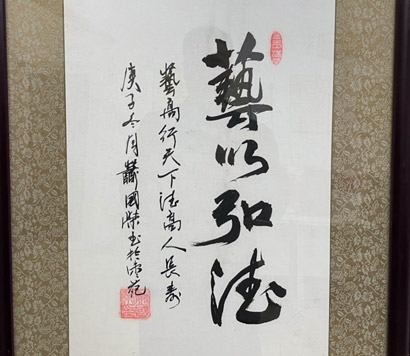 藝以弘德
藝高行天下德高人長壽
庚子冬月蕭國樑書於